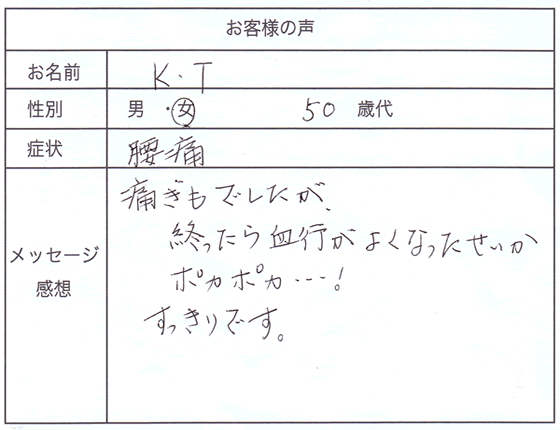 お客様の声
お名前 K・T
性別 男 ・女 50 歳代
症状 腰痛
メッセージ
感想
痛ぎもでしたが、
終ったら血行がよくなったせいか
ポカポカ…!
すっきりです。